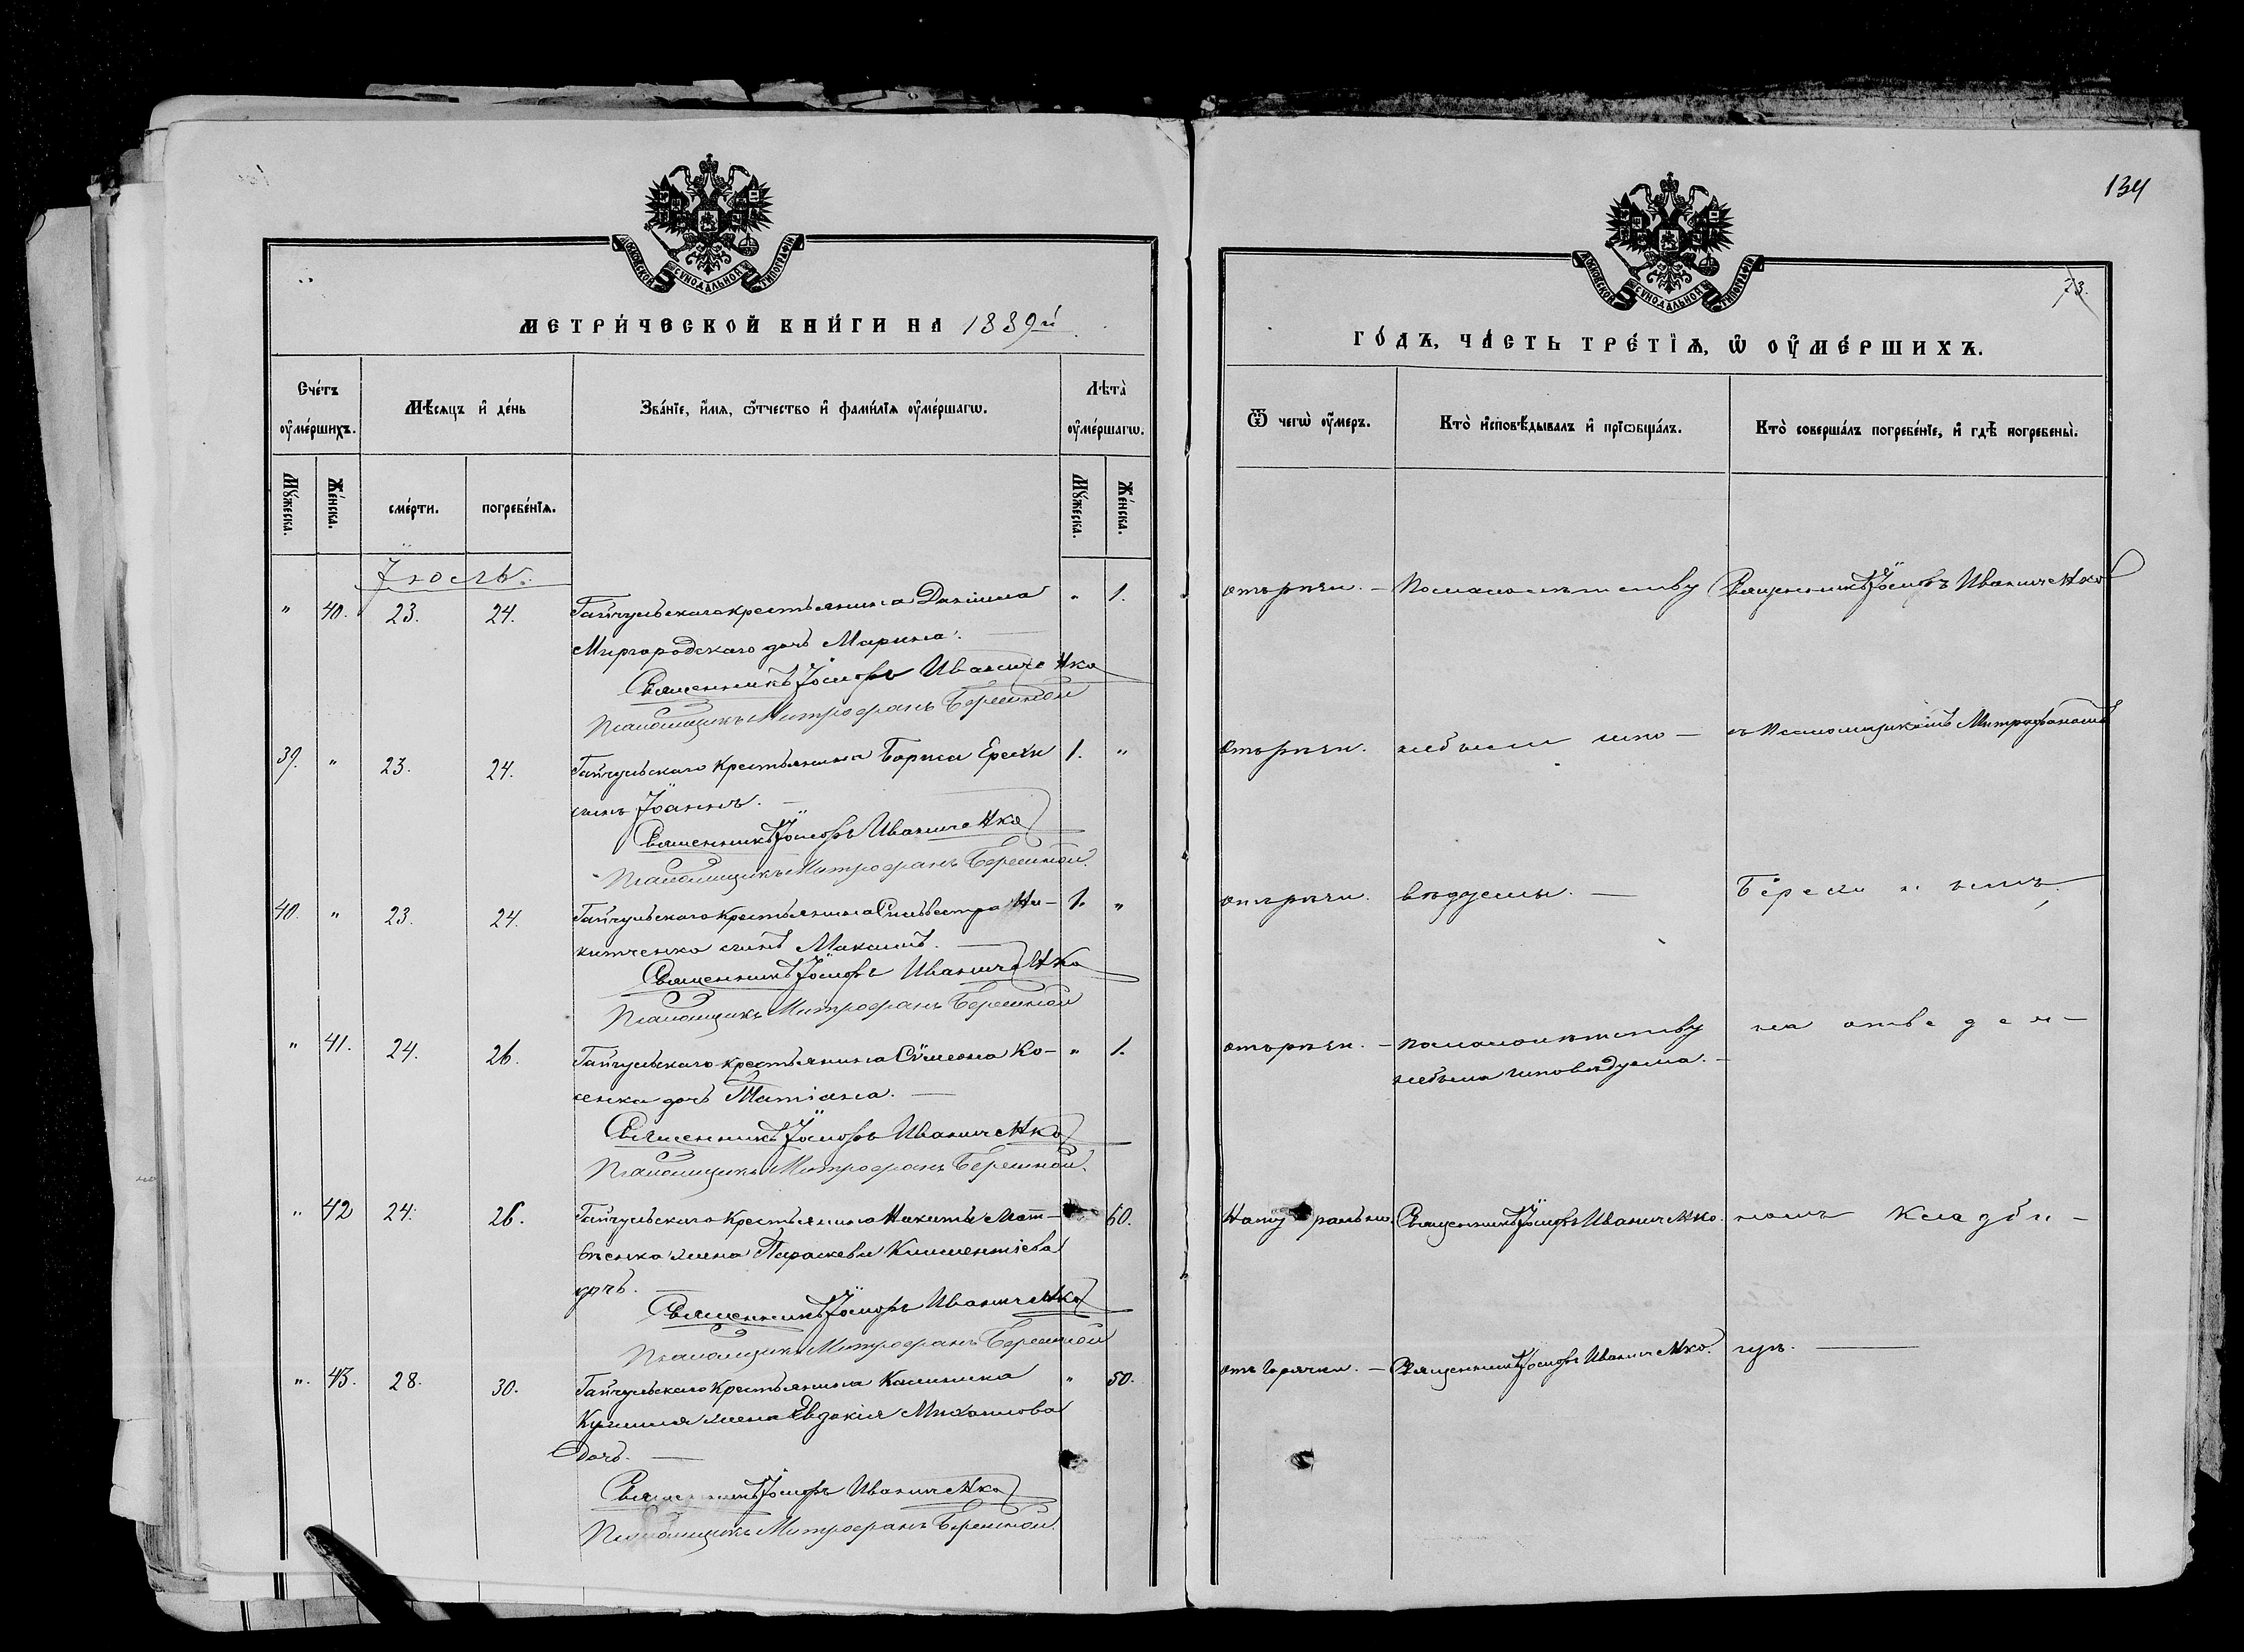 МОСКОВСКОЙ СѴНОДАЛЬНОЙ ТИПОГРАФІИ
МЕТРИ́ЧЕСКОЙ КНИ́ГИ НА 1889й
Сче́тъ ᲂу҆ме́ршихъ.
Мѣ́сяцъ и҆ де́нь
Зва́нїе, и҆́мя, ѻ҆́тчество и҆ фами́лїя ᲂу҆ме́ршагѡ.
Лѣта̀ ᲂу҆ме́ршагѡ.
Мꙋ́жеска.
Же́нска.
сме́рти.
погребе́нїя.
Мꙋ́жеска.
Же́нска.
Іюль.
" 40. 23. 24. Гайчульскаго крестьянина Даніила " 1.
Миргородскаго дочь Марина.
Священникъ Іосифъ Иваниченко
Псаломщикъ Митрофанъ Бережной
39. " 23. 24. Гайчульскаго крестьянина Бориса 1. "
сынъ Іоаннъ.
Священникъ Іосифъ Иваниченко
Псаломщикъ Митрофанъ Бережной.
40. " 23. 24. Гайчульскаго крестьянина Сильвестра Ни- 1. "
китченка сынъ Максимъ.
Священникъ Іосифъ Иваниченко
Псаломщикъ Митрофанъ Бережной
" 41. 24. 26. Гайчульскаго крестьянина Сѵмеона Ко- " 1.
сенка дочь Татіана.
Священникъ Іосифъ Иваниченко
Псаломщикъ Митрофанъ Бережной.
" 42 24. 26. Гайчульскаго крестьянина Никиты Мат- 60.
вѣенка жена Параскева Климентіева
дочь.
Священникъ Іосифъ Иваниченко
Псаломщикъ Митрофанъ Бережной
" 43. 28. 30. Гайчульскаго крестьянина Калиника " 50.
жена Евдокія Михаилова
дочь.
Священникъ Іосифъ Иваниченко
Псаломщикъ Митрофанъ Бережной.
134
73.
МОСКОВСКОЙ СѴНОДАЛЬНОЙ ТИПОГРАФІИ
ГО́ДЪ, ЧА́СТЬ ТРЕ́ТЇѦ, Ѡ҆ ОУ҆МЕ́РШИХЪ.
Ѿ чегѡ̀ ᲂу҆́меръ.
Кто̀ и҆сповѣ́дывалъ и҆ прїѡбща́лъ.
Кто̀ соверша́лъ погребе́нїе, и҆ гдѣ̀ погребены̀.
отъ рѣзи. По малолѣтству Священникъ Іосифъ Иваниченко
отъ рѣзи. небыли испо- съ Псаломщикомъ Митрофаномъ
отъ рѣзи. вѣдуемы. Бережнымъ
отъ рѣзи. По малолѣтству на отведен-
небыла исповѣдуема.
Натурально. Священникъ Іосифъ Иваниченко. номъ кладби-
отъ горячки. Священникъ Іосифъ Иваниченко. щѣ.